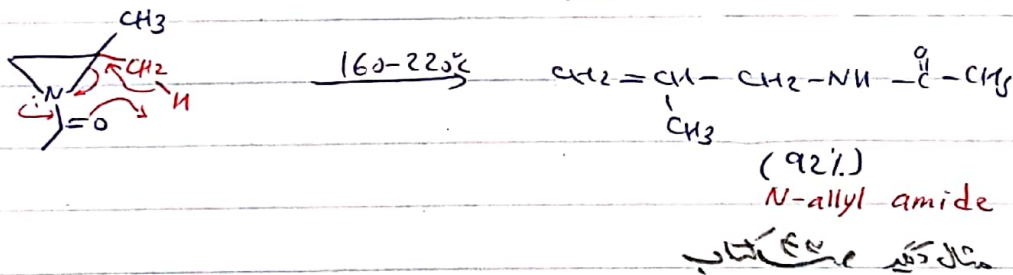 CH3
CH2
N
H
=O
160-220°C
CH2=CH-CH2-NH-C-CH3
O
CH3
(92%)
N-allyl amide
مثال دیگر کتاب